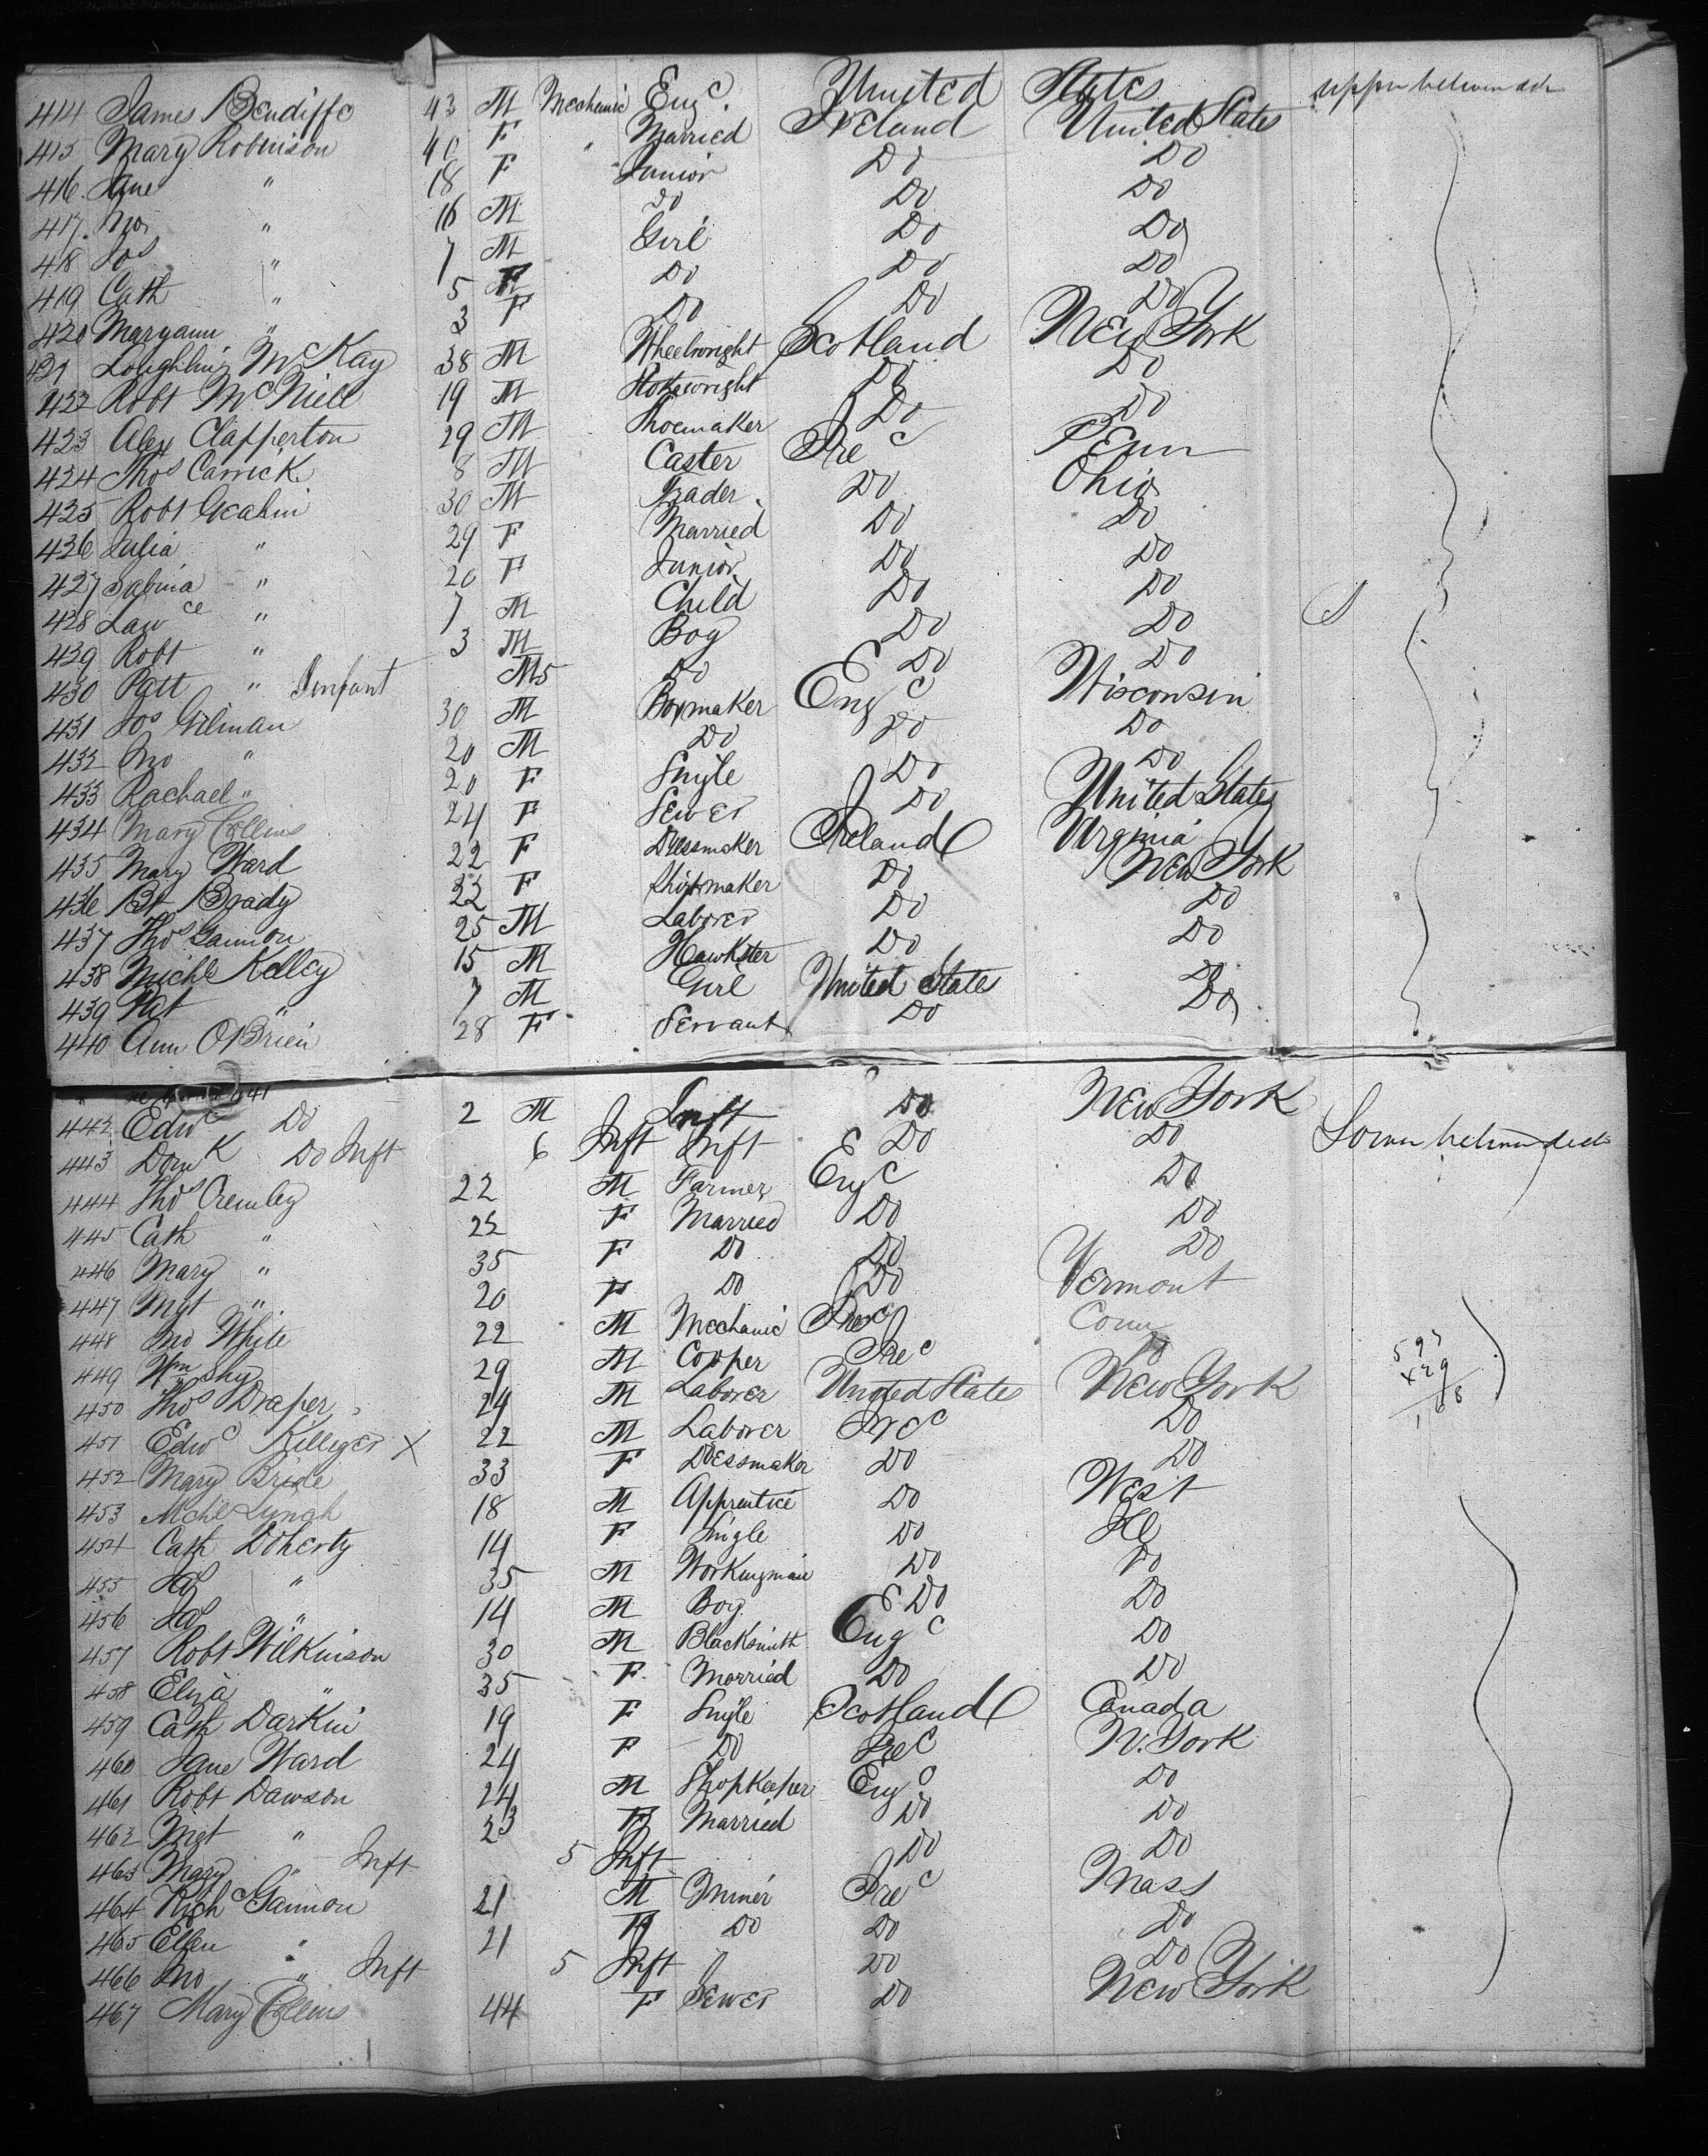 414 James Bendiffe 43 M Mechanic Eng.d United States upper between deck
415 Mary Robinson 40 F " Married Ireland United States
416 Jane " 18 F Junior Do Do
417 Jno " 16 M Do Do Do
418 Jos " 7 M Girl Do Do
419 Cath " 5 F Do Do Do
420 Maryann " 3 F Do Do Do
421 Loughlin McKay 38 M Wheelwright Scotland New York
422 Robt McNiell 19 M Do Do
423 Alex Clapperton 29 M Shoemaker Do Do
424 Thos Carrick 8 M Caster Ired Penn
425 Robt Geahin 30 M Trader Do Ohio
426 Julia " 29 F Married Do Do
427 Sabina " 20 F Junior Do Do
428 Lawce " 7 M Child Do Do
429 Robt " 3 M Boy Do Do
430 Patt " Infant M5 Do Do Do
431 Jos Gilman 30 M Boxmaker Engd Wisconsin
432 Jno " 20 M Do Do Do
433 Rachael " 20 F Single Do Do
434 Mary Collins 24 F Sewer Do United States
435 Mary Ward 22 F Dressmaker Ireland Virginia
436 Bt Brady 22 F Shirtmaker Do New York
437 Thos Gannon 25 M Laborer Do Do
438 Michl Kelley 15 M Hawkster Do Do
439 Pat " 7 M Girl United States Do
440 Ann O'Brien 28 F Servant Do Do
441
442 Edwd Do 2 M Inft Do New York
443 Domk Do Inft 6 Inft Inft Do Do Lower between deck
444 Thos Cremley 22 M Farmer Engd Do
445 Cath " 22 F Married Do Do
446 Mary " 35 F Do Do Do
447 Mgt " 20 F Do Do Vermont
448 Jno White 22 M Mechanic Ired Conn
449 Wm Shy 29 M Cooper Ired Do
450 Thos Draper 24 M Laborer United States New York
451 Edwd Killiger X 22 M Laborer Ired Do
452 Mary Bride 33 F Dressmaker Do Do
453 Mchl Lynch 18 M Apprentice Do West
454 Cath Doherty 14 F Single Do Ill
455 Jas " 35 M Workingman Do Do
456 Jas " 14 M Boy Do Do
457 Robt Wilkinson 30 M Blacksmith Engd Do
458 Eliza " 35 F Married Do Do
459 Cath Darkin 19 F Single Scotland Canada
460 Jane Ward 24 F Do Ired N. York
461 Robt Dawson 24 M Shopkeeper Engd Do
462 Mgt " 23 F Married Do Do
463 Mary " Inft 5 Inft Do Do
464 Richd Gannon 21 M Miner Ired Mass
465 Ellen " 21 F Do Do Do
466 Jno " Inft 5 Inft Do Do
467 Mary Collins 44 F Sewer Do New York